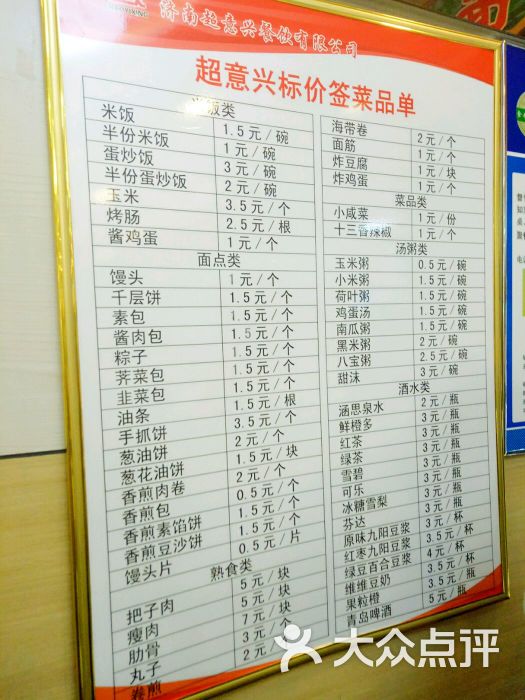 济南超意兴餐饮有限公司
超意兴标价签菜品单
米饭类
米饭 1.5元/碗
半份米饭 1元/碗
蛋炒饭 3元/碗
半份蛋炒饭 2元/碗
玉米 3.5元/个
烤肠 2.5元/根
酱鸡蛋 1元/个
面点类
馒头 1元/个
千层饼 1.5元/个
素包 1.5元/个
酱肉包 1.5元/个
粽子 1.5元/个
荠菜包 1.5元/个
韭菜包 1.5元/个
油条 1.5元/根
手抓饼 3.5元/个
葱油饼 2元/个
葱花油饼 1.5元/块
香煎肉卷 2元/个
香煎包 0.5元/个
香煎素馅饼 1.5元/个
香煎豆沙饼 1.5元/个
馒头片 0.5元/片
熟食类
把子肉 5元/块
瘦肉 5元/块
肋骨 7元/块
丸子 3元/个
卷煎 2元/
海带卷 2元/个
面筋 1元/个
炸豆腐 1元/块
炸鸡蛋 1元/个
菜品类
小咸菜 1元/份
十三香辣椒 1元/个
汤粥类
玉米粥 0.5元/碗
小米粥 1.5元/碗
荷叶粥 1.5元/碗
鸡蛋汤 1.5元/碗
南瓜粥 1.5元/碗
黑米粥 2元/碗
八宝粥 2.5元/碗
甜沫 3元/碗
酒水类
涵思泉水 2元/瓶
鲜橙多 3元/瓶
红茶 3元/瓶
绿茶 3元/瓶
雪碧 3元/瓶
可乐 3元/瓶
冰糖雪梨 3元/瓶
芬达 3元/瓶
原味九阳豆浆 3元/杯
红枣九阳豆浆 3.5元/杯
绿豆百合豆浆 4元/杯
维维豆奶 3.5元/瓶
果粒橙 3.5元/瓶
青岛啤酒 5元/瓶
大众点评